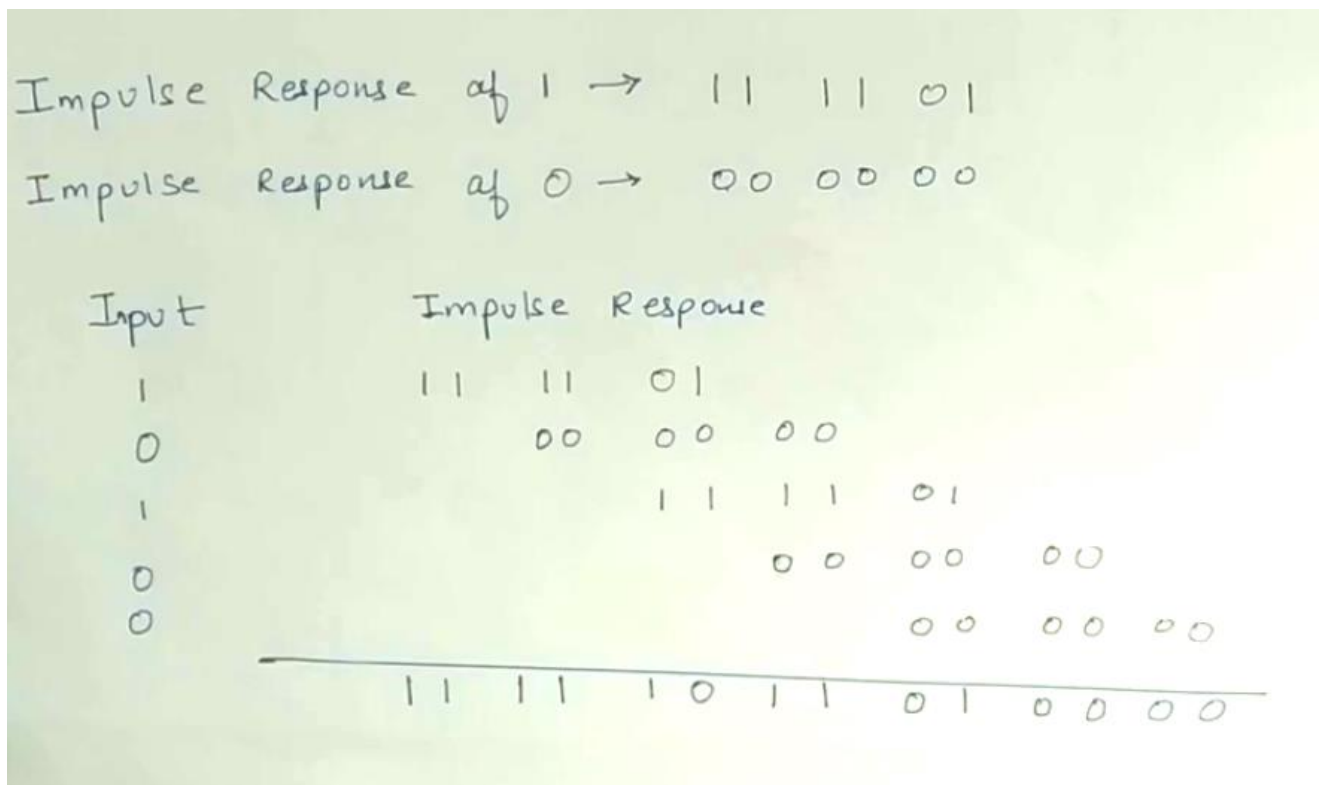 Impulse Response of 1 → 11 11 01
Impulse Response of 0 → 00 00 00
Input Impulse Response
1 11 11 01
0 00 00 00
1 11 11 01
0 00 00 00
0 00 00 00
11 11 10 11 01 00 00